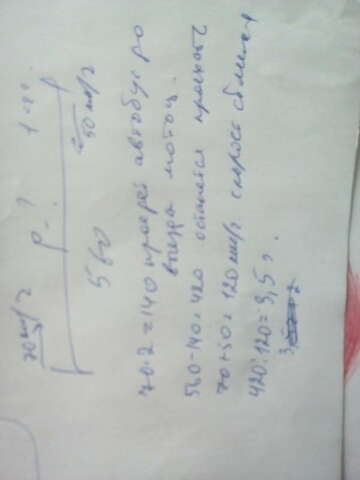 70 км/ч р - ? t - 2ч.
50 км/ч
560
70·2=140 проехал автобус до
выезда мотоц.
560-140=420 останется проехать
70+50=120 км/ч скорость сближен
420:120=3,5 ч.